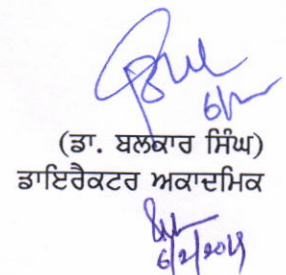 (ਡਾ. ਬਲਕਾਰ ਸਿੰਘ)
ਡਾਇਰੈਕਟਰ ਅਕਾਦਮਿਕ
6/2/2019